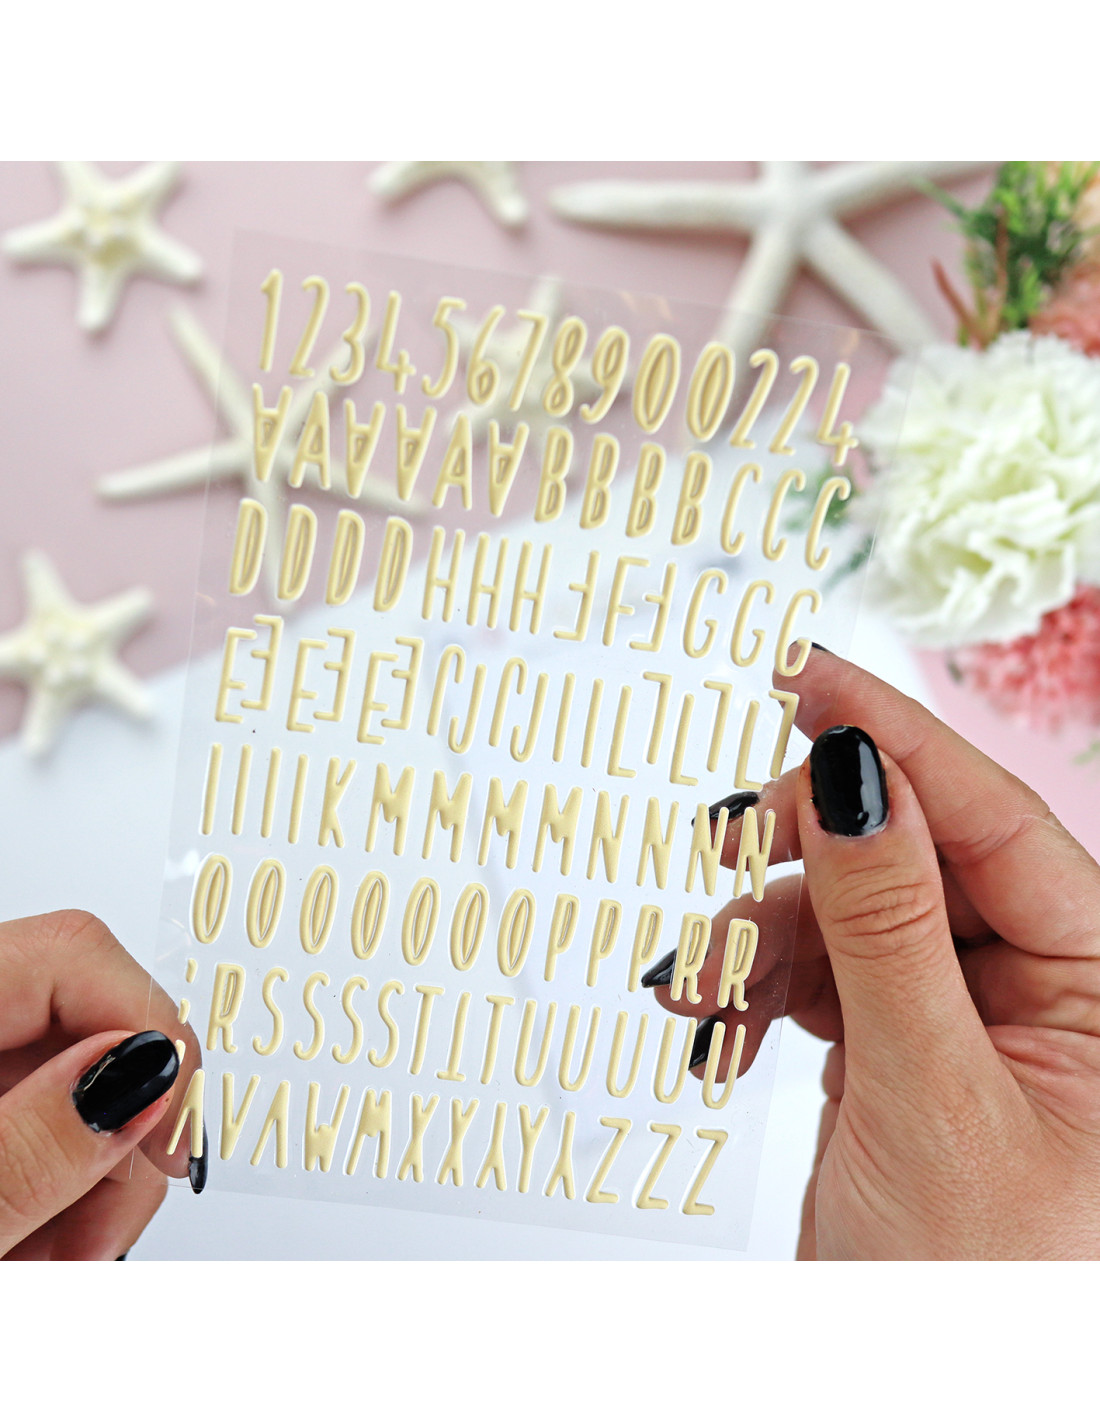 1 2 3 4 5 6 7 8 9 0 0 2 2 4
A A A A A A B B B B C C C
D D D D H H H F F F G G G
E E E E E E C J C J I I L L L L L L
I I I I K M M M M N N N N
O O O O O O O P P P R R
' R S S S S T T T U U U U U
V V V W W X X Y Y Y Z Z Z